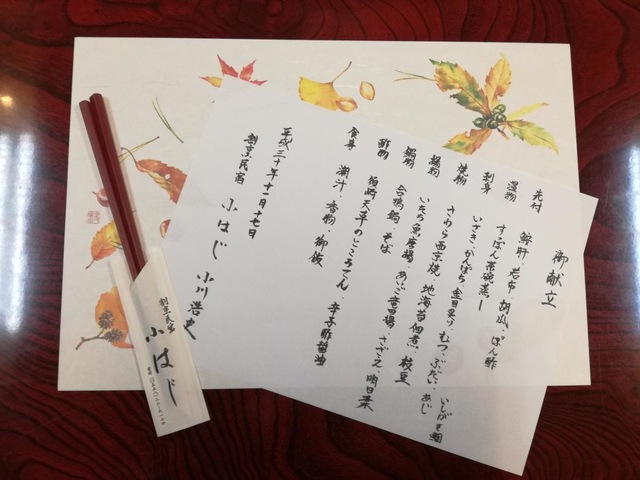 御献立
先付 鮟肝・若布・胡瓜、ぽん酢
温物 すっぽん茶碗蒸し
刺身 いさき・かんぱち・金目まり・むつ・ぶだい・あじ
いしがき鯛
焼物 さわら西京焼・地海苔佃煮・枝豆
揚物 いたち魚唐揚・あいご竜田揚・さざえ・明日葉
鍋物 合鴨鍋・そば
酢物 須崎天草のところてん・辛子酢醤油
食事 潮汁・香物・御飯
平成三十年十一月十七日
割烹民宿 小はじ 小川浩史
割烹民宿
小はじ